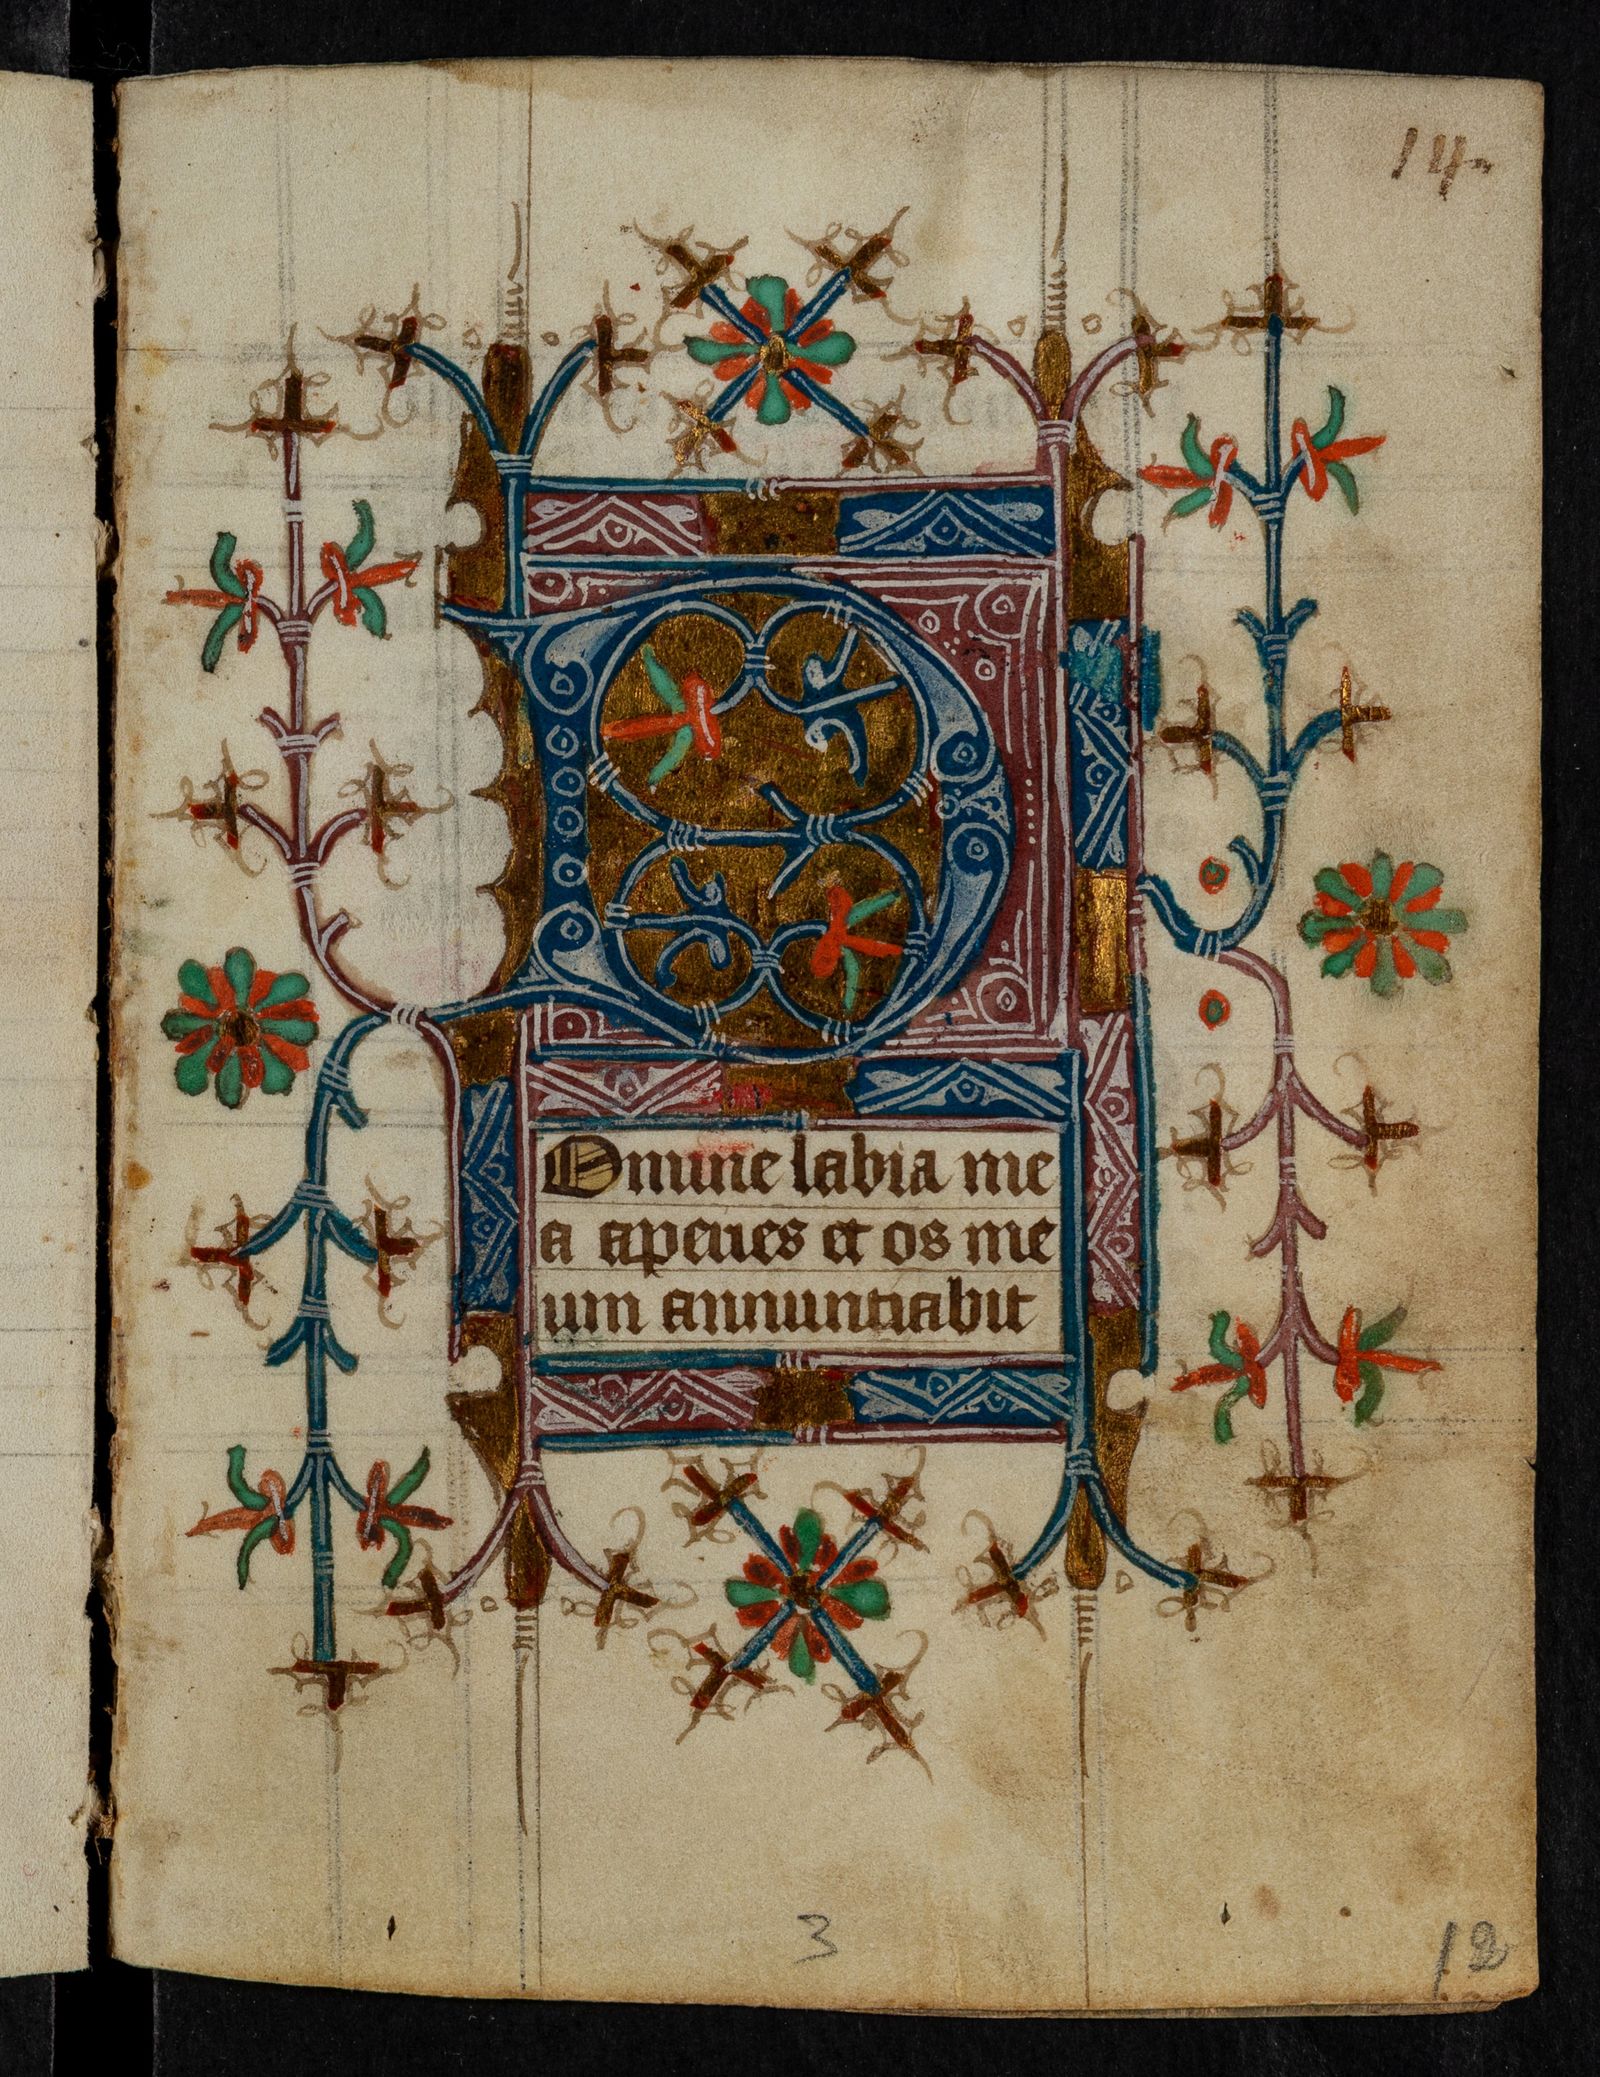 14
D
Omine labia me
a aperies et os me
um annuntiabit
3
12